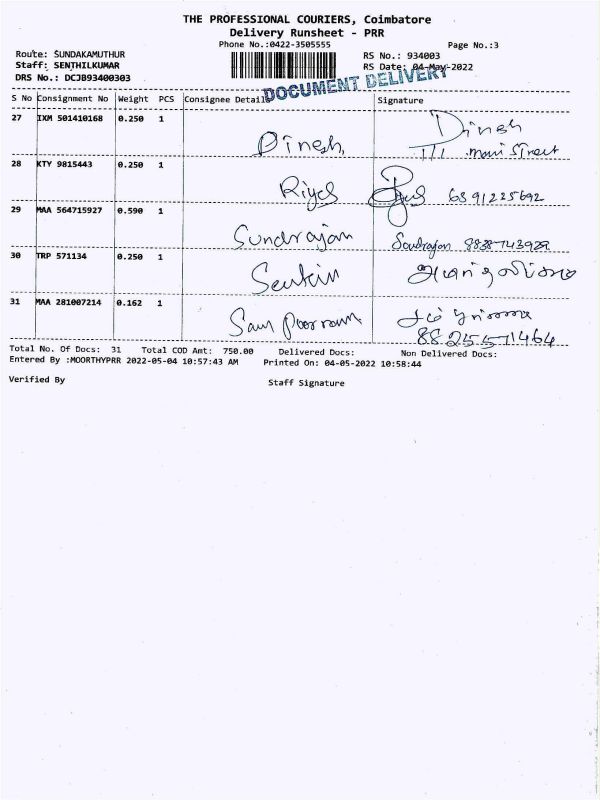 THE PROFESSIONAL COURIERS, Coimbatore
Delivery Runsheet - PRR
Phone No.:0422-3505555
Page No.:3
Route: SUNDAKAMUTHUR
RS No.: 934003
Staff: SENTHILKUMAR
RS Date: 04-May-2022
DRS No.: DCJB93400303
DOCUMENT DELIVERY
S No Consignment No Weight PCS Consignee Details Signature
27 IXM 501410168 0.250 1
Dinesh Dinesh
1/1 main street
28 KTY 9815443 0.250 1
29 MAA 564715927 0.590 1
Sundrajan
30 TRP 571134 0.250 1
31 MAA 281007214 0.162 1
8825571464
Total No. Of Docs: 31 Total COD Amt: 750.00 Delivered Docs: Non Delivered Docs:
Entered By :MOORTHYPRR 2022-05-04 10:57:43 AM Printed On: 04-05-2022 10:58:44
Verified By
Staff Signature